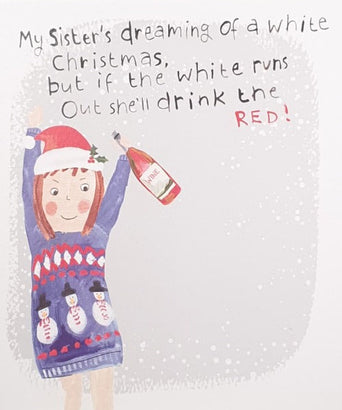 My Sister's dreaming of a white
Christmas,
but if the white runs
Out she'll drink the
RED!
WINE